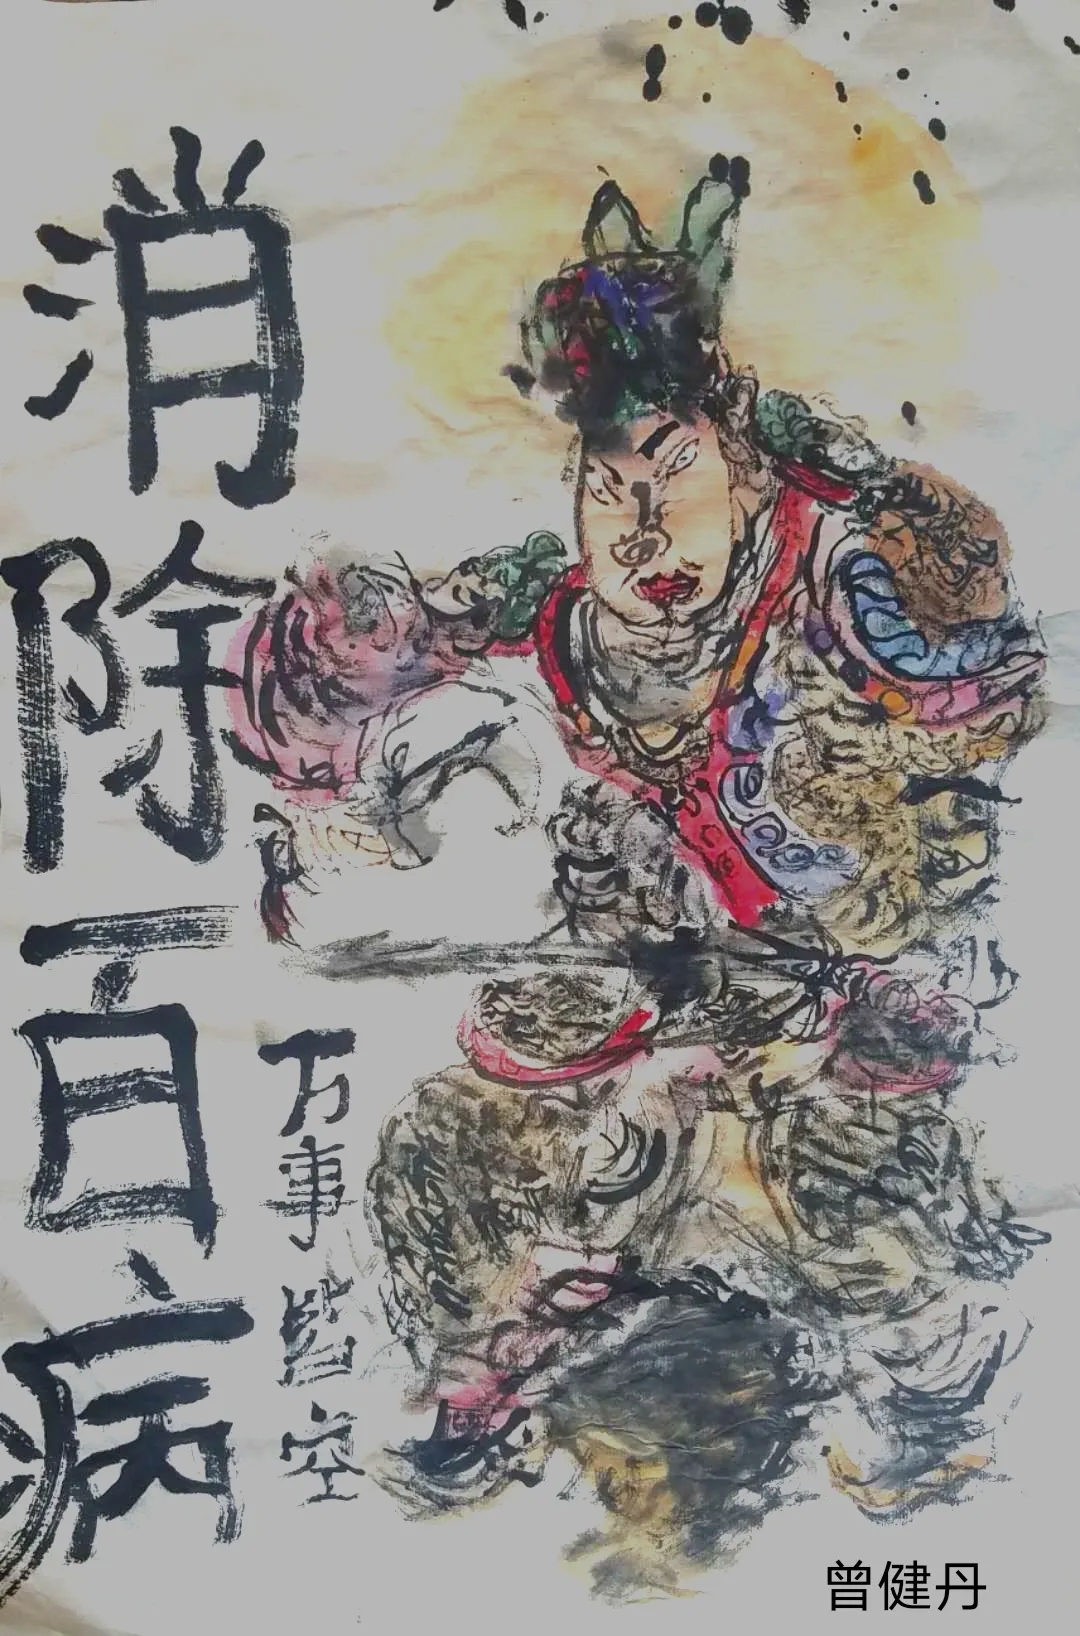 消除百病
万事皆空
曾健丹